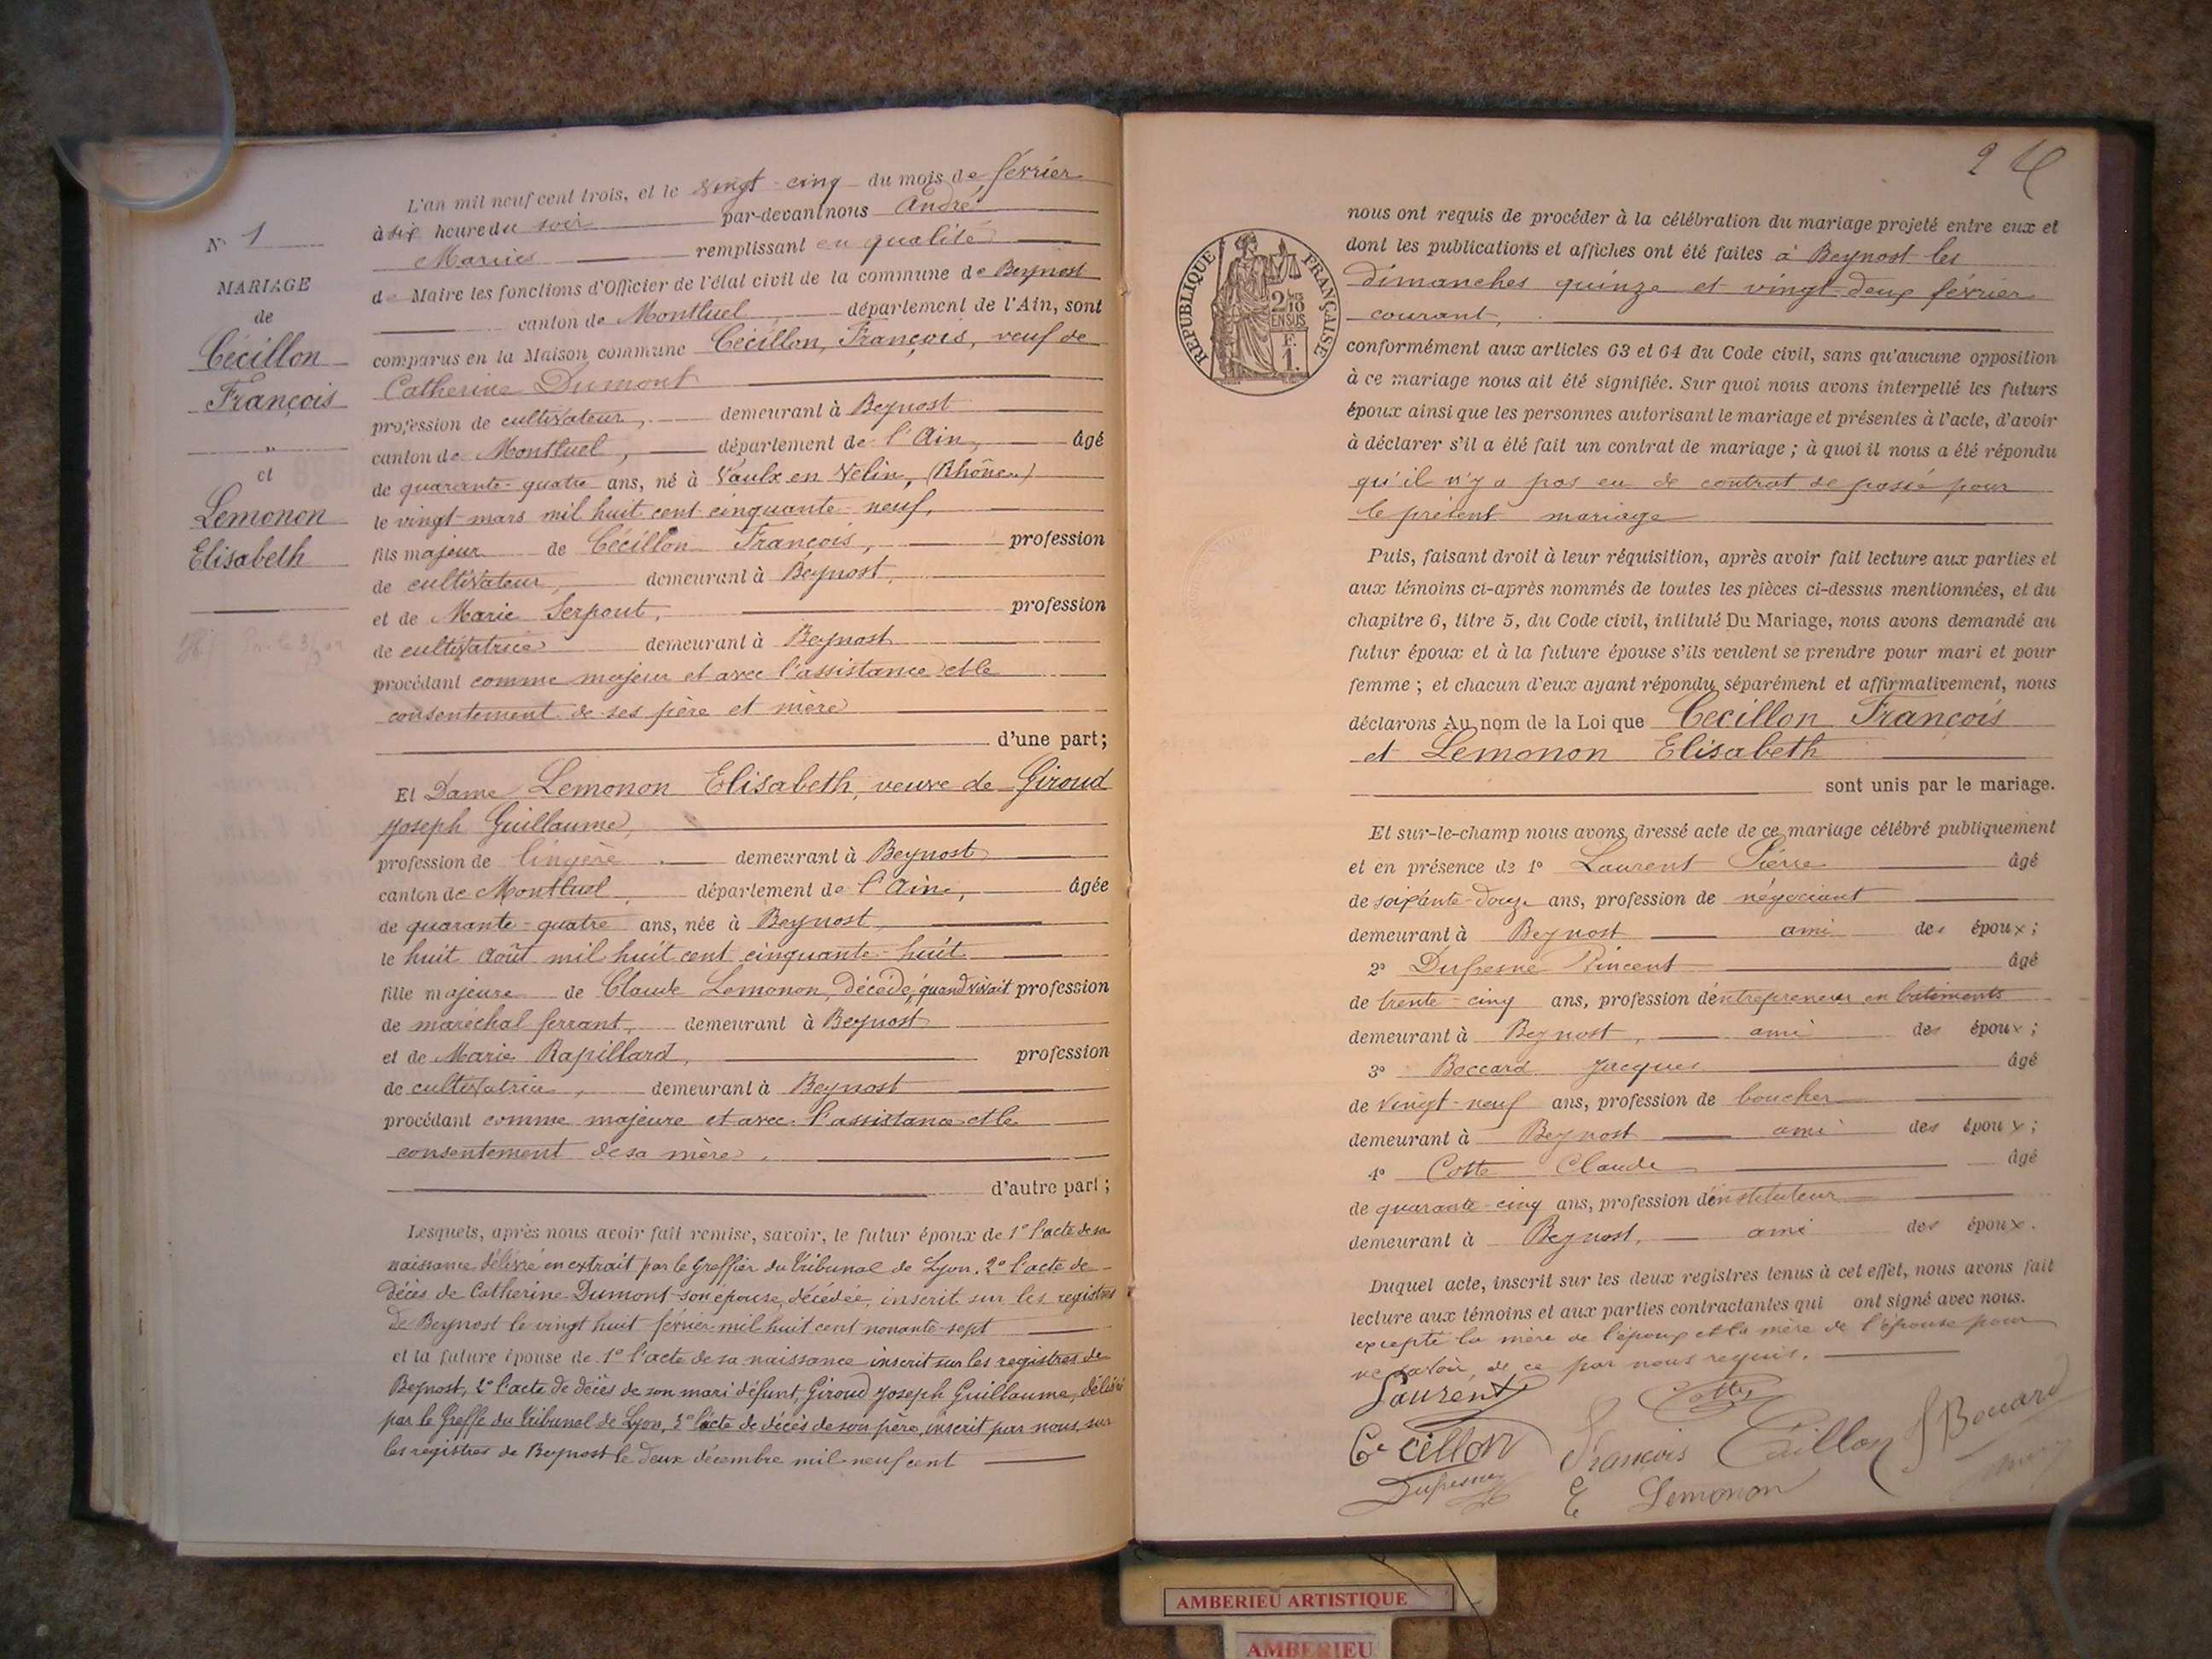 N° 1
MARIAGE
de
Cécillon
François
"
et
Lemonon
Elisabeth
L'an mil neuf cent trois, et le vingt-cinq du mois de février
à six heure du soir par-devant nous André
Marius remplissant en qualité
de Maire les fonctions d'Officier de l'état civil de la commune de Beynost
canton de Montluel, département de l'Ain, sont
comparus en la Maison commune Cécillon, François, veuf de
Catherine Dumont
profession de cultivateur, demeurant à Beynost
canton de Montluel, département de l'Ain, âgé
de quarante-quatre ans, né à Vaulx en Velin, (Rhône)
le vingt mars mil huit cent cinquante-neuf,
fils majeur de Cécillon François, profession
de cultivateur, demeurant à Beynost,
et de Marie Serpout, profession
de cultivatrice demeurant à Beynost
procédant comme majeur et avec l'assistance et le
consentement de ses père et mère
d'une part;
Et Dame Lemonon Elisabeth, veuve de Giroud
Joseph Guillaume,
profession de lingère demeurant à Beynost
canton de Montluel, département de l'Ain, âgée
de quarante-quatre ans, née à Beynost,
le huit Août mil huit cent cinquante-huit
fille majeure de Claude Lemonon, décédé, quand vivait profession
de maréchal ferrant, demeurant à Beynost
et de Marie Rapillard, profession
de cultivatrice, demeurant à Beynost
procédant comme majeure et avec l'assistance et le
consentement de sa mère.
d'autre part;
Lesquels, après nous avoir fait remise, savoir, le futur époux de 1° l'acte de sa
naissance délivré en extrait par le Greffier du Tribunal de Lyon. 2° l'acte de
décès de Catherine Dumont son épouse, décédée, inscrit sur les registres
de Beynost le vingt huit février mil huit cent nonante-sept
et la future épouse de 1° l'acte de sa naissance inscrit sur les registres de
Beynost, 2° l'acte de décès de son mari défunt, Giroud Joseph Guillaume, délivré
par le Greffe du Tribunal de Lyon, 3° l'acte de décès de son père, inscrit par nous, sur
les registres de Beynost le deux décembre mil neuf cent
2
REPUBLIQUE FRANÇAISE
2/10
EN SUS
F.
1.
nous ont requis de procéder à la célébration du mariage projeté entre eux et
dont les publications et affiches ont été faites à Beynost les
dimanches quinze et vingt-deux février
courant,
conformément aux articles 63 et 64 du Code civil, sans qu'aucune opposition
à ce mariage nous ait été signifiée. Sur quoi nous avons interpellé les futurs
époux ainsi que les personnes autorisant le mariage et présentes à l'acte, d'avoir
à déclarer s'il a été fait un contrat de mariage; à quoi il nous a été répondu
qu'il n'y a pas eu de contrat de passé pour
le présent mariage
Puis, faisant droit à leur réquisition, après avoir fait lecture aux parties et
aux témoins ci-après nommés de toutes les pièces ci-dessus mentionnées, et du
chapitre 6, titre 5, du Code civil, intitulé Du Mariage, nous avons demandé au
futur époux et à la future épouse s'ils veulent se prendre pour mari et pour
femme; et chacun d'eux ayant répondu séparément et affirmativement, nous
déclarons Au nom de la Loi que Cecillon François
et Lemonon Elisabeth
sont unis par le mariage.
Et sur-le-champ nous avons dressé acte de ce mariage célébré publiquement
et en présence de 1° Laurent Pierre âgé
de soixante-douze ans, profession de négociant
demeurant à Beynost ami des époux;
2° Dufresne Vincent âgé
de trente-cinq ans, profession d'entrepreneur en batiments
demeurant à Beynost, ami des époux;
3° Boccard Jacques âgé
de vingt-neuf ans, profession de boucher
demeurant à Beynost ami des époux;
4° Cotte Claude âgé
de quarante-cinq ans, profession d'instituteur
demeurant à Beynost, ami des époux.
Duquel acte, inscrit sur les deux registres tenus à cet effet, nous avons fait
lecture aux témoins et aux parties contractantes qui ont signé avec nous.
excepté la mère de l'époux et la mère de l'épouse pour
ne savoir, de ce par nous requis.
Laurent Cotte
Cecillon François Cécillon J Bocard
Dufresne E Lemonon
AMBERIEU ARTISTIQUE
AMBERIEU